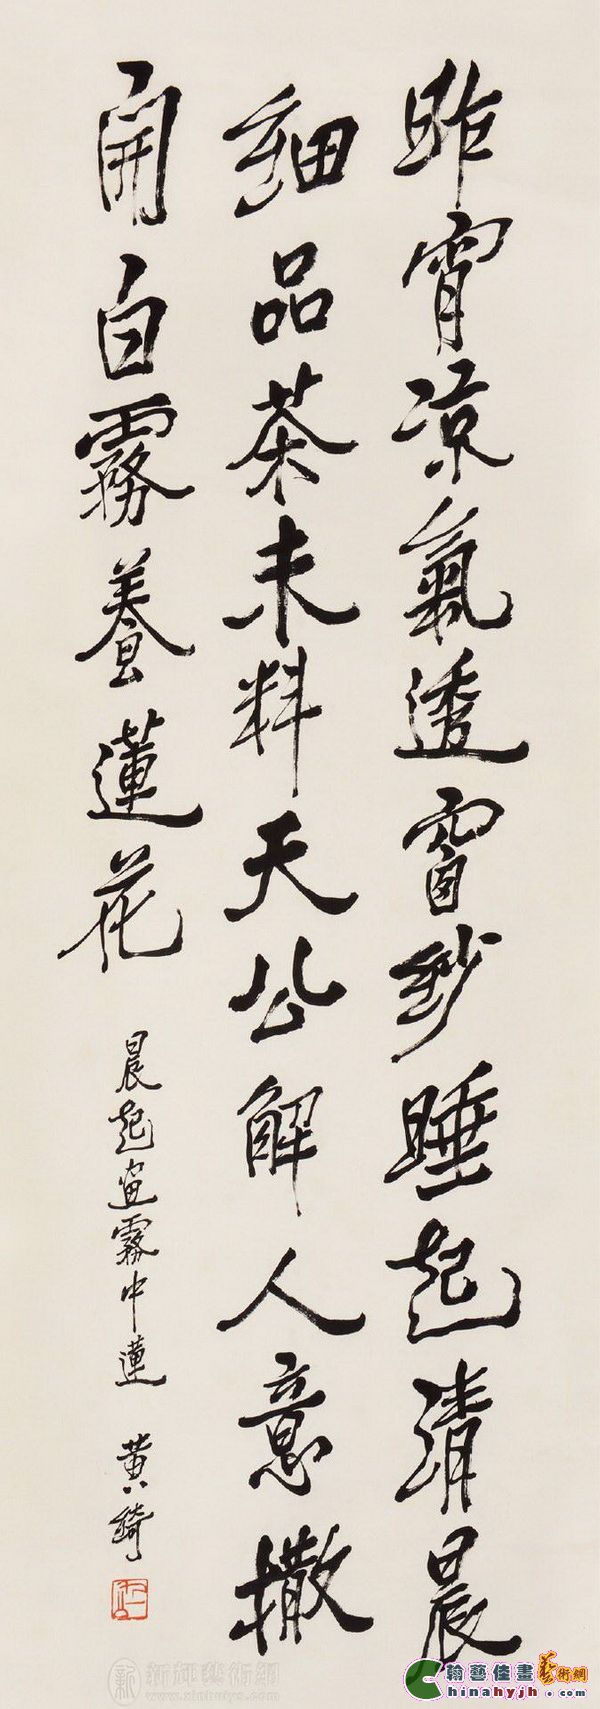 昨宵凉氣透窗紗睡起清晨
細品茶未料天公解人意撒
開白霧養蓮花
晨起畫霧中蓮 黄綺
新輝藝術網
www.xinhuiys.com
翰藝佳畫藝術網
Chinahyjh.com